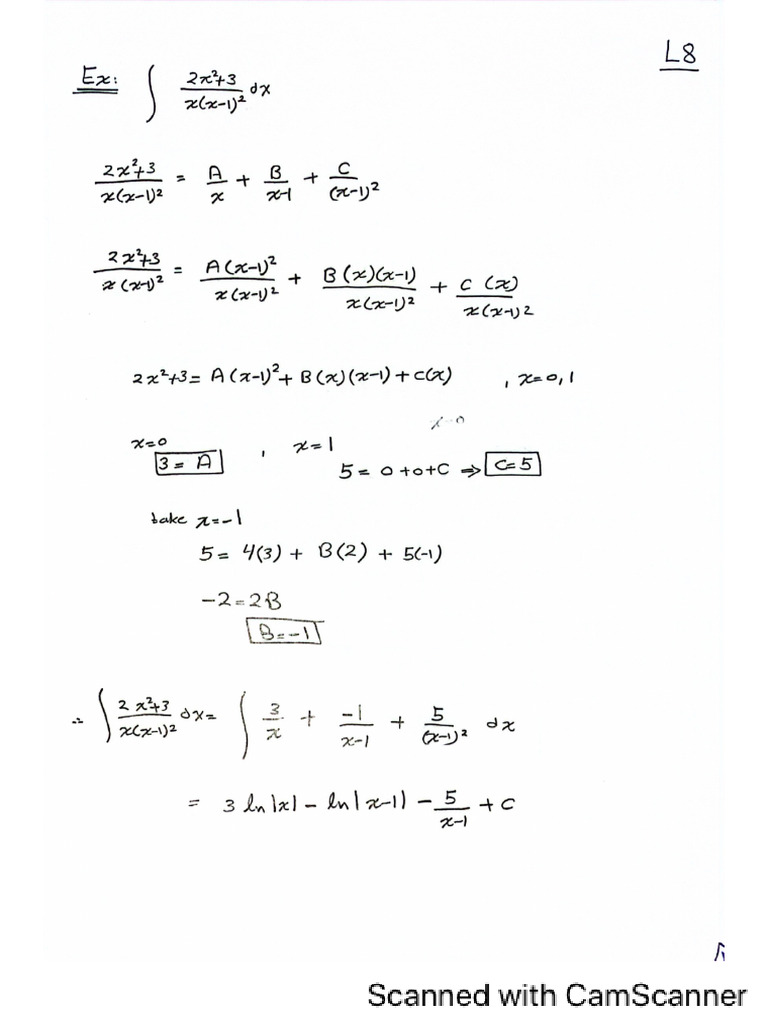 L8
Ex: ∫ (2x²+3)/(x(x-1)²) dx
(2x²+3)/(x(x-1)²) = A/x + B/(x-1) + C/(x-1)²
(2x²+3)/(x(x-1)²) = A(x-1)²/(x(x-1)²) + B(x)(x-1)/(x(x-1)²) + C(x)/(x(x-1)²)
2x²+3 = A(x-1)² + B(x)(x-1) + C(x) , x=0,1
x=0 , x=1
3 = A
5 = 0+0+C ⇒ C=5
take x=-1
5 = 4(3) + B(2) + 5(-1)
-2=2B
B=-1
∴ ∫ (2x²+3)/(x(x-1)²) dx = ∫ 3/x + -1/(x-1) + 5/(x-1)² dx
= 3 ln|x| - ln|x-1| - 5/(x-1) + C
Scanned with CamScanner